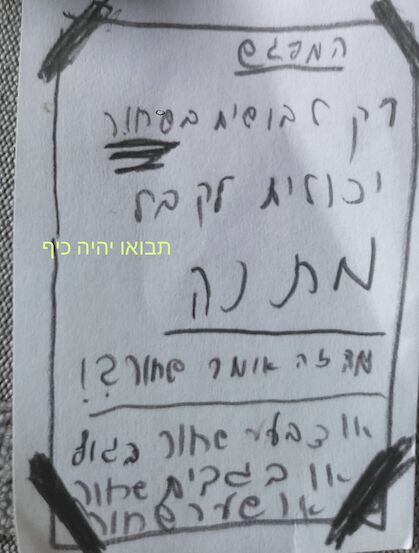 המפגש
רק לבושית בשחור
יכולית לקבל
תבואו יהיה כיף
מתנה
מה זה אומר שחור?!
או צבע שחור בגוף
או בגבים שחור
או שער שחור